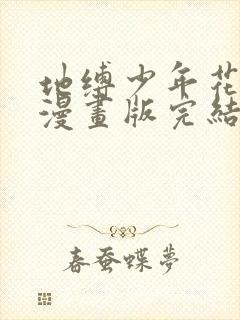 地缚少年花
漫畫版完結
春蚕蝶夢